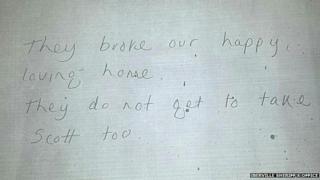 They broke our happy,
loving home.
They do not get to take
Scott too.
IBERVILLE SHERIFF'S OFFICE